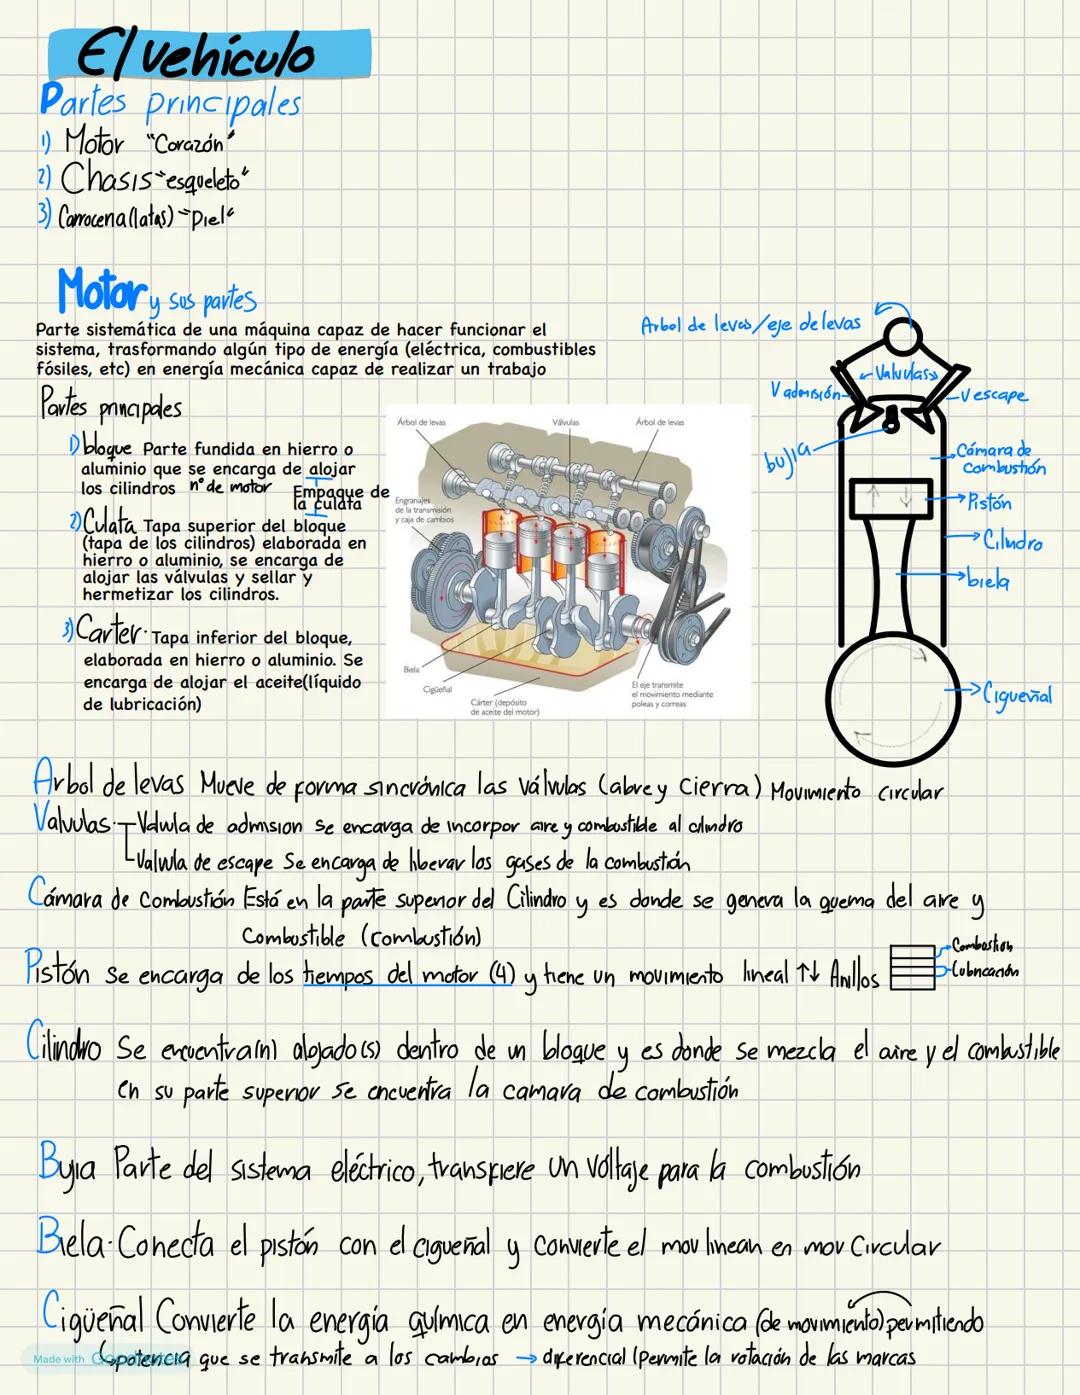 El vehículo
Partes principales
1) Motor "Corazón"
2) Chasis "esqueleto"
3) Carrocería (latas) "Piel"
Motor y sus partes
Parte sistemática de una máquina capaz de hacer funcionar el
sistema, trasformando algún tipo de energía (eléctrica, combustibles
fósiles, etc) en energía mecánica capaz de realizar un trabajo
Partes principales
1) bloque Parte fundida en hierro o
aluminio que se encarga de alojar
los cilindros n° de motor
Empaque de
la culata
2) Culata Tapa superior del bloque
(tapa de los cilindros) elaborada en
hierro o aluminio, se encarga de
alojar las válvulas y sellar y
hermetizar los cilindros.
3) Carter. Tapa inferior del bloque,
elaborada en hierro o aluminio. Se
encarga de alojar el aceite(líquido
de lubricación)
Árbol de levas
Válvulas
Árbol de levas
Engranajes
de la transmisión
y caja de cambios
Biela
Cigüeñal
Cárter (depósito
de aceite del motor)
El eje transmite
el movimiento mediante
poleas y correas
Arbol de levas/eje de levas
Valvulas
V admisión
V escape
bujia
Cámara de
combustión
Pistón
Cilindro
biela
Cigueñal
Arbol de levas Mueve de forma sincrónica las válvulas (abre y cierra) Movimiento circular
Valvulas. Valvula de admision se encarga de incorpor aire y combustible al cilindro
Valvula de escape Se encarga de liberar los gases de la combustión
Cámara de Combustión Está en la parte superior del Cilindro y es donde se genera la quema del aire y
Combustible (combustión)
Pistón se encarga de los tiempos del motor (4) y tiene un movimiento lineal ↑↓ Anillos
Combustion
Lubricación
Cilindro Se encuentra(n) alojado(s) dentro de un bloque y es donde se mezcla el aire y el combustible
en su parte superior se encuentra la camara de combustión
Bujia Parte del sistema eléctrico, transfiere un voltaje para la combustión
Biela. Conecta el pistón con el cigueñal y convierte el mov linean en mov Circular
Cigüeñal Convierte la energía química en energía mecánica (de movimiento) permitiendo
potencia que se transmite a los cambios → diferencial (Permite la rotación de las marcas
Made with Goodnotes